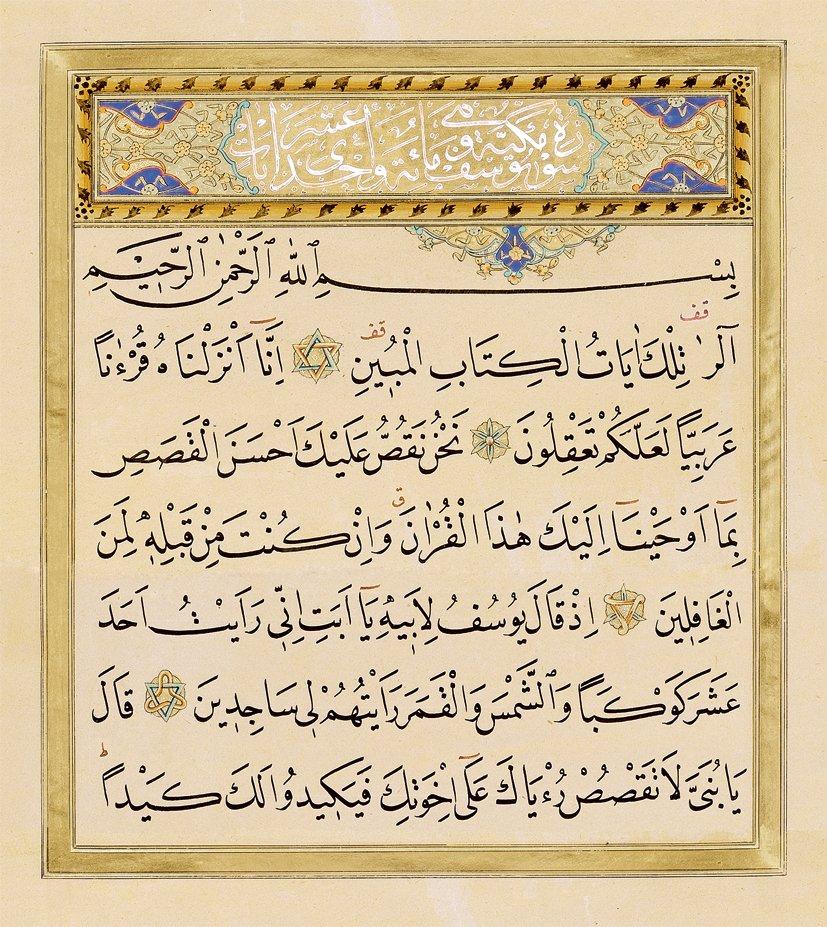 سورة يوسف مكية وهي مائة واحدى عشر ايات
بِسْمِ ٱللّٰهِ ٱلرَّحْمٰنِ ٱلرَّحِيمِ
قف
آلرٰ تِلْكَ اٰيَاتُ الْكِتَابِ الْمُبٖينِ قف اِنَّٓا اَنْزَلْنَاهُ قُرْءٰناً
عَرَبِيّاً لَعَلَّكُمْ تَعْقِلُونَ نَحْنُ نَقُصُّ عَلَيْكَ اَحْسَنَ الْقَصَصِ
بِمَٓا اَوْحَيْنَٓا اِلَيْكَ هٰذَا الْقُرْاٰنَ ق وَاِنْ كُنْتَ مِنْ قَبْلِهٖ لَمِنَ
الْغَافِلٖينَ اِذْ قَالَ يُوسُفُ لِاَبٖيهِ يَٓا اَبَتِ اِنّٖى رَاَيْتُ اَحَدَ
عَشَرَ كَوْكَباً وَٱلشَّمْسَ وَالْقَمَرَ رَاَيْتُهُمْ لٖى سَاجِدٖينَ قَالَ
يَا بُنَىَّ لَا تَقْصُصْ رُءْيَاكَ عَلٰٓى اِخْوَتِكَ فَيَكٖيدُوا لَكَ كَيْداً ط